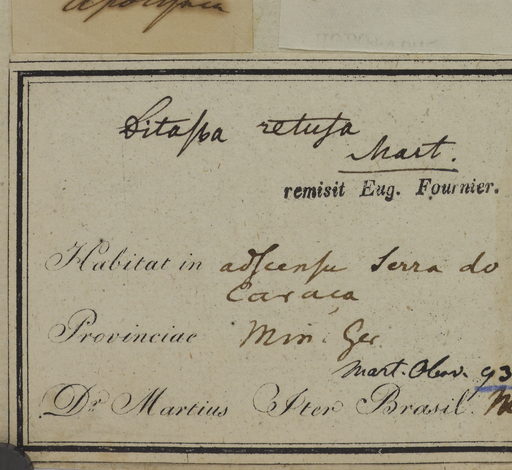 Apocynea
Ditassa retusa
Mart.
remisit Eug. Fournier.
Habitat in adscensu Serra do
Caraça
Provinciae Min. Ger.
Mart. Obsv. 93
Dr. Martius Iter Brasil.